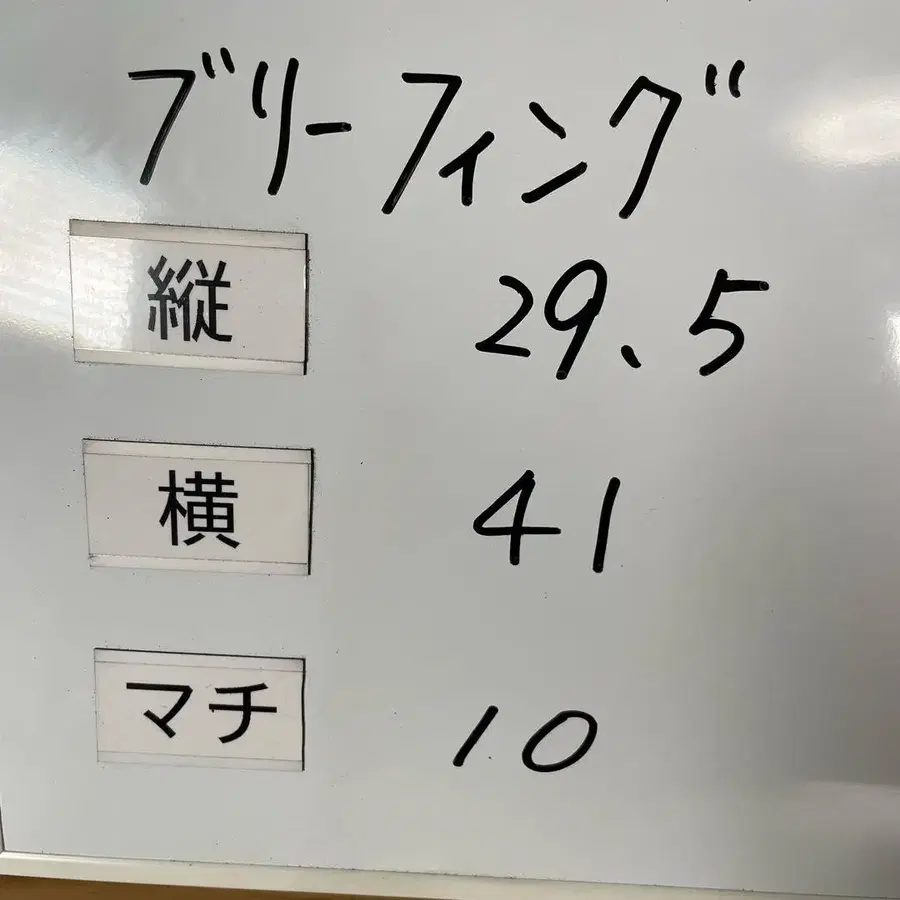 ブリーフィング
縦 29、5
横 41
マチ 10